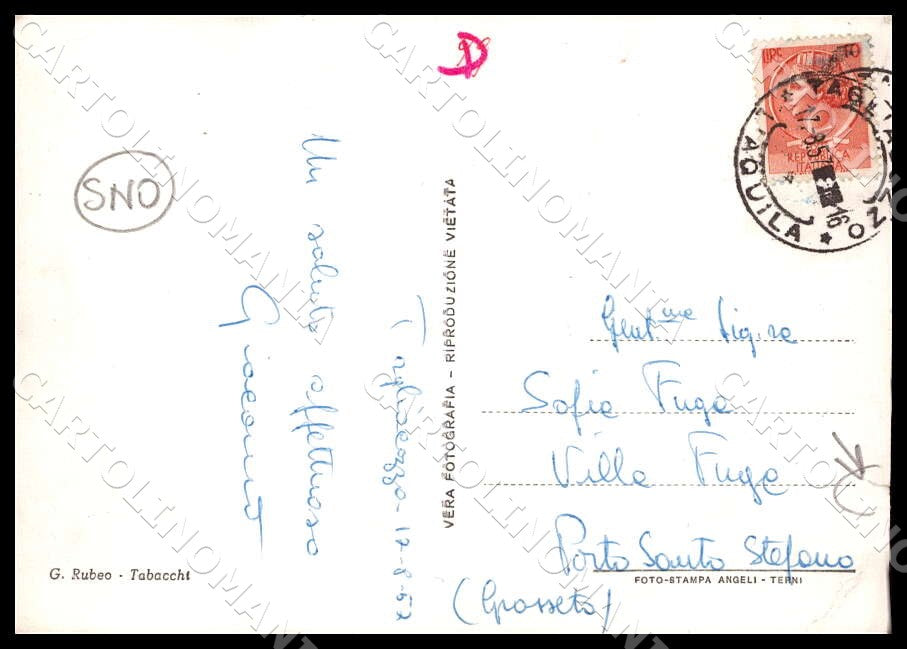 SNO
Tagliacozzo - 17-8-57
Un saluto affettuoso
Giacomo
VERA FOTOGRAFIA - RIPRODUZIONE VIETATA
LIRE 10
REPUBBLICA
ITALIANA
L'AQUILA
17.8.57
16
Gent.me Sig.ra
Sofia Fuga
Villa Fuga
Porto Santo Stefano
(Grosseto)
G. Rubeo - Tabacchi
FOTO-STAMPA ANGELI - TERNI
CARTOLINOMANIA